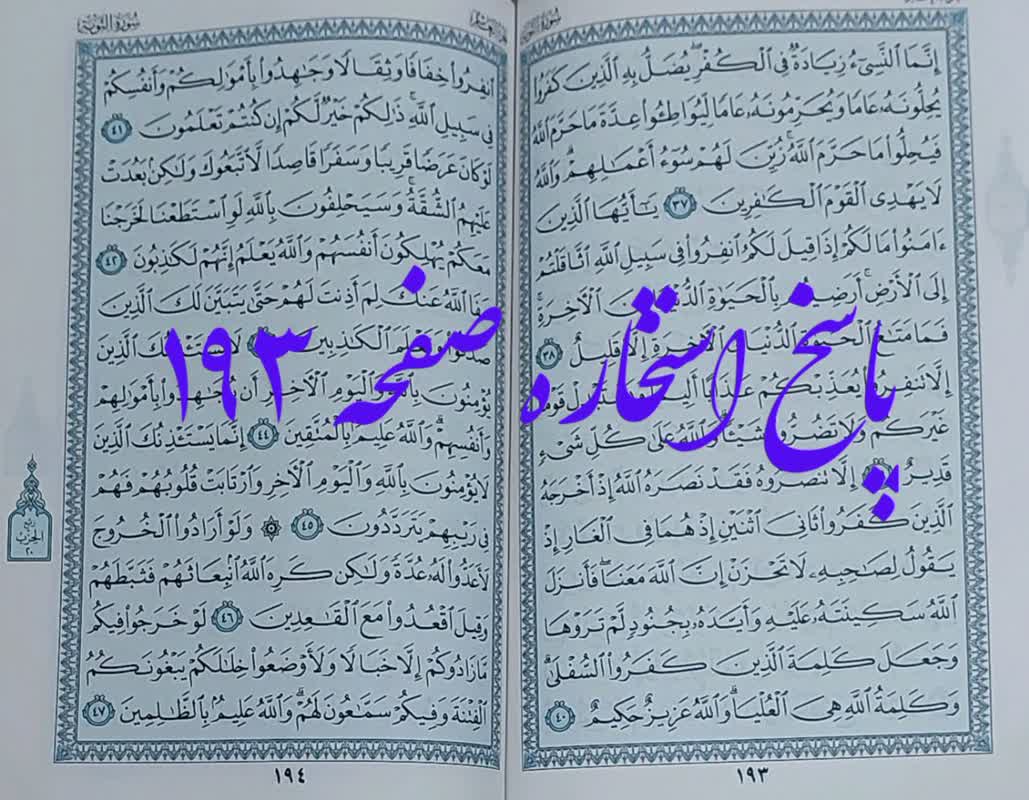 إِنَّمَا ٱلنَّسِىٓءُ زِيَادَةٌ فِى ٱلْكُفْرِ ۖ يُضَلُّ بِهِ ٱلَّذِينَ كَفَرُوا۟
يُحِلُّونَهُۥ عَامًا وَيُحَرِّمُونَهُۥ عَامًا لِّيُوَاطِـُٔوا۟ عِدَّةَ مَا حَرَّمَ ٱللَّهُ
فَيُحِلُّوا۟ مَا حَرَّمَ ٱللَّهُ ۚ زُيِّنَ لَهُمْ سُوٓءُ أَعْمَـٰلِهِمْ ۗ وَٱللَّهُ
لَا يَهْدِى ٱلْقَوْمَ ٱلْكَـٰفِرِينَ ٣٧ يَـٰٓأَيُّهَا ٱلَّذِينَ
ءَامَنُوا۟ مَا لَكُمْ إِذَا قِيلَ لَكُمُ ٱنفِرُوا۟ فِى سَبِيلِ ٱللَّهِ ٱثَّاقَلْتُمْ
إِلَى ٱلْأَرْضِ ۚ أَرَضِيتُم بِٱلْحَيَوٰةِ ٱلدُّنْيَا مِنَ ٱلْـَٔاخِرَةِ ۚ
فَمَا مَتَـٰعُ ٱلْحَيَوٰةِ ٱلدُّنْيَا فِى ٱلْـَٔاخِرَةِ إِلَّا قَلِيلٌ ٣٨
إِلَّا تَنفِرُوا۟ يُعَذِّبْكُمْ عَذَابًا أَلِيمًا وَيَسْتَبْدِلْ قَوْمًا
غَيْرَكُمْ وَلَا تَضُرُّوهُ شَيْـًٔا ۗ وَٱللَّهُ عَلَىٰ كُلِّ شَىْءٍ
قَدِيرٌ إِلَّا تَنصُرُوهُ فَقَدْ نَصَرَهُ ٱللَّهُ إِذْ أَخْرَجَهُ
ٱلَّذِينَ كَفَرُوا۟ ثَانِىَ ٱثْنَيْنِ إِذْ هُمَا فِى ٱلْغَارِ إِذْ
يَقُولُ لِصَـٰحِبِهِۦ لَا تَحْزَنْ إِنَّ ٱللَّهَ مَعَنَا ۖ فَأَنزَلَ
ٱللَّهُ سَكِينَتَهُۥ عَلَيْهِ وَأَيَّدَهُۥ بِجُنُودٍ لَّمْ تَرَوْهَا
وَجَعَلَ كَلِمَةَ ٱلَّذِينَ كَفَرُوا۟ ٱلسُّفْلَىٰ ۗ
وَكَلِمَةُ ٱللَّهِ هِىَ ٱلْعُلْيَا ۗ وَٱللَّهُ عَزِيزٌ حَكِيمٌ ٤٠
١٩٣
سُورَةُ التَّوْبَةِ
ٱنفِرُوا۟ خِفَافًا وَثِقَالًا وَجَـٰهِدُوا۟ بِأَمْوَٰلِكُمْ وَأَنفُسِكُمْ
فِى سَبِيلِ ٱللَّهِ ۚ ذَٰلِكُمْ خَيْرٌ لَّكُمْ إِن كُنتُمْ تَعْلَمُونَ ٤١
لَوْ كَانَ عَرَضًا قَرِيبًا وَسَفَرًا قَاصِدًا لَّٱتَّبَعُوكَ وَلَـٰكِنۢ بَعُدَتْ
عَلَيْهِمُ ٱلشُّقَّةُ ۚ وَسَيَحْلِفُونَ بِٱللَّهِ لَوِ ٱسْتَطَعْنَا لَخَرَجْنَا
مَعَكُمْ يُهْلِكُونَ أَنفُسَهُمْ وَٱللَّهُ يَعْلَمُ إِنَّهُمْ لَكَـٰذِبُونَ ٤٢
عَفَا ٱللَّهُ عَنكَ لِمَ أَذِنتَ لَهُمْ حَتَّىٰ يَتَبَيَّنَ لَكَ ٱلَّذِينَ
صَدَقُوا۟ وَتَعْلَمَ ٱلْكَـٰذِبِينَ لَا يَسْتَـْٔذِنُكَ ٱلَّذِينَ
يُؤْمِنُونَ بِٱللَّهِ وَٱلْيَوْمِ ٱلْـَٔاخِرِ أَن يُجَـٰهِدُوا۟ بِأَمْوَٰلِهِمْ
وَأَنفُسِهِمْ ۗ وَٱللَّهُ عَلِيمٌۢ بِٱلْمُتَّقِينَ ٤٤ إِنَّمَا يَسْتَـْٔذِنُكَ ٱلَّذِينَ
لَا يُؤْمِنُونَ بِٱللَّهِ وَٱلْيَوْمِ ٱلْـَٔاخِرِ وَٱرْتَابَتْ قُلُوبُهُمْ فَهُمْ
فِى رَيْبِهِمْ يَتَرَدَّدُونَ ٤٥ ۞ وَلَوْ أَرَادُوا۟ ٱلْخُرُوجَ
لَأَعَدُّوا۟ لَهُۥ عُدَّةً وَلَـٰكِن كَرِهَ ٱللَّهُ ٱنۢبِعَاثَهُمْ فَثَبَّطَهُمْ
وَقِيلَ ٱقْعُدُوا۟ مَعَ ٱلْقَـٰعِدِينَ ٤٦ لَوْ خَرَجُوا۟ فِيكُم
مَّا زَادُوكُمْ إِلَّا خَبَالًا وَلَأَوْضَعُوا۟ خِلَـٰلَكُمْ يَبْغُونَكُمُ
ٱلْفِتْنَةَ وَفِيكُمْ سَمَّـٰعُونَ لَهُمْ ۗ وَٱللَّهُ عَلِيمٌۢ بِٱلظَّـٰلِمِينَ ٤٧
١٩٤
ربع
الحزب
٢٠
پاسخ استخاره صفحه ۱۹۳